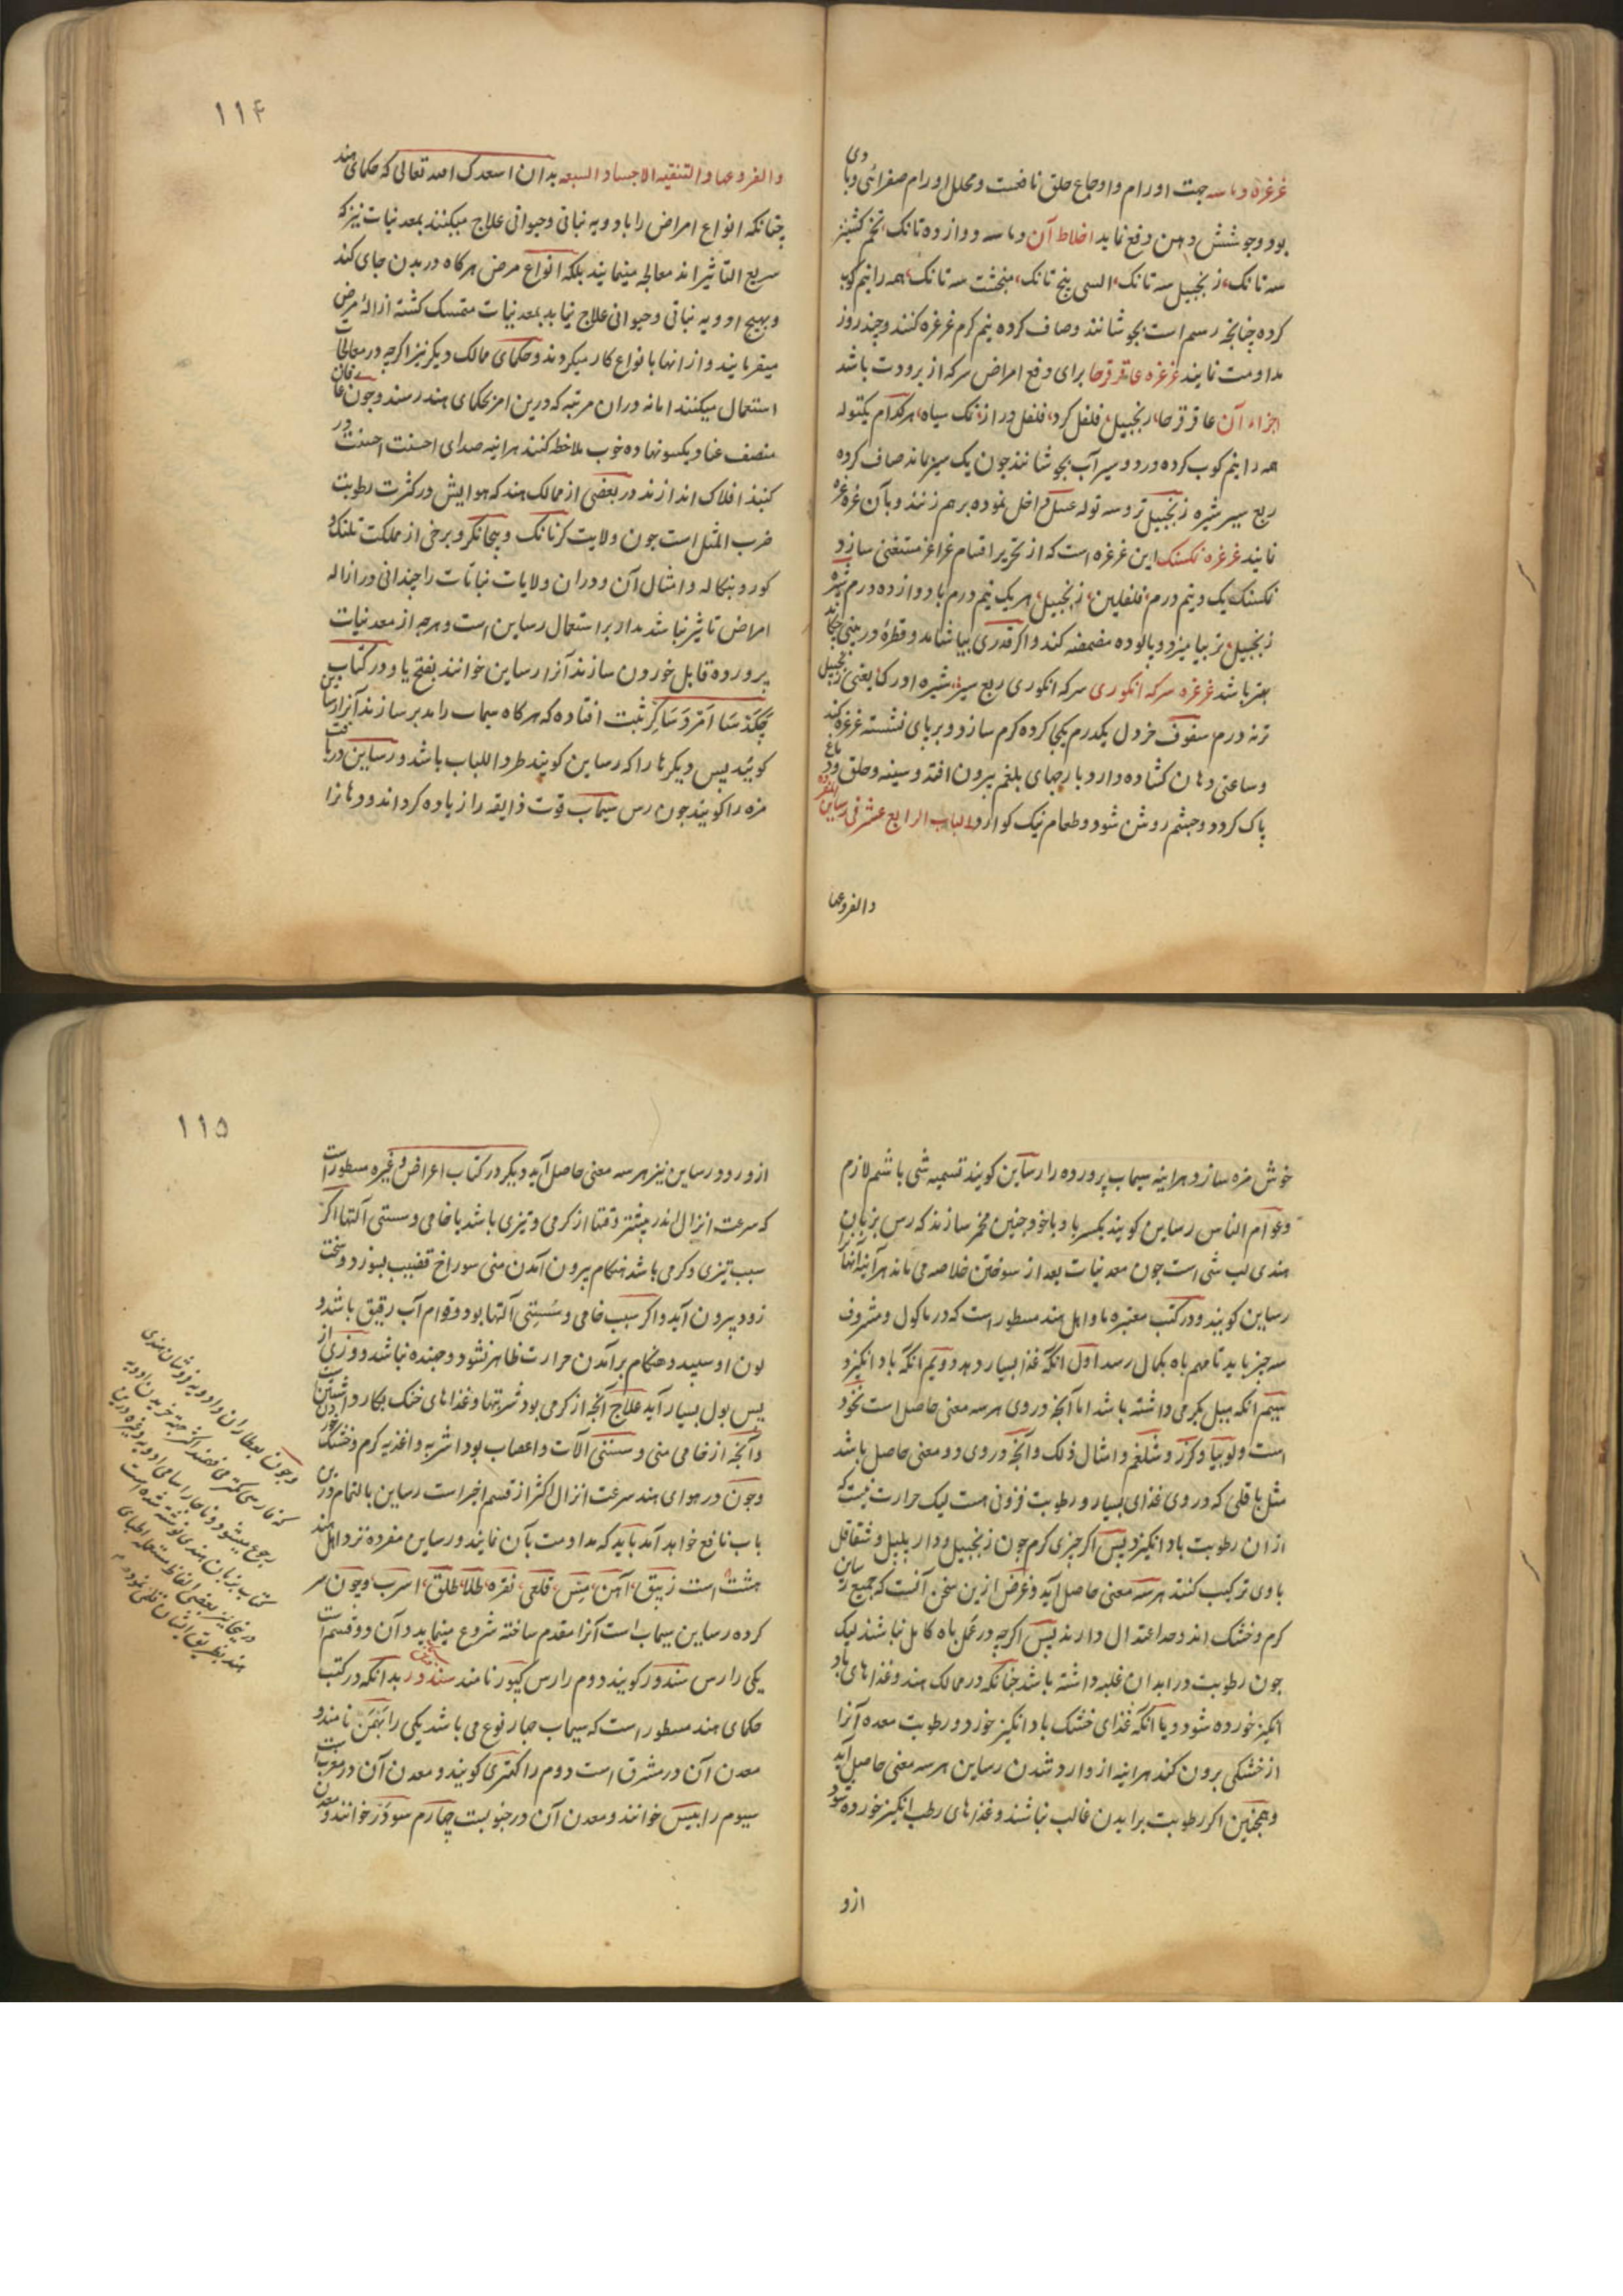 غرغره دماسه جهت اورام و اوجاع حلق نافعست و محلل اورام صفرائی و با دی
بود و جوشش دهن دفع نماید اخلاط آن دماسه دوازده تانک تخم کشنیز
سه تانک زنجبیل سه تانک السی پنج تانک منجشت سه تانک همه را نیم کوب
کرده چنانچه رسم است بجوشانند و صاف کرده نیم گرم غرغره کنند و چند روز
مداومت نمایند غرغره عاقرقرحا برای دفع امراض سر که از برودت باشد
اجزاء آن عاقرقرحا زنجبیل فلفل کرد فلفل دراز نمک سیاه هر کدام یکتوله
همه را نیم کوب کرده در دو سیر آب بجوشانند چون یک سیر بماند صاف کرده
ربع سیر شیره زنجبیل تر و سه توله عسل داخل نموده بر هم زنند و بآن غرغره
نمایند غرغره نکسنک این غرغره است که از تحریر اقسام غراغر مستغنی سازد
نکسنک یک و نیم درم فلفلین زنجبیل هر یک نیم درم با دوازده درم شیره
زنجبیل تر بیامیزد و پالوده مضمضه کند و اگر قدری بیاشامد و قطرهٔ در بینی چکاند
بهتر باشد غرغره سرکه انکوری سرکه انکوری ربع سیر شیره اورک یعنی زنجبیل
تر نه درم سفوف خردل یکدرم یکجا کرده گرم سازد و بر پای نشسته غرغره کند
و ساعتی دهان کشاده دارد پارچهای بلغم بیرون افتد و سینه و حلق و دماغ
پاک گردد و چشم روشن شود و طعام نیک گوارد الباب الرابع عشر فی رساین المفرده
والفروعها
۱۱۴
والفروعها و التنقیه الاجساد السبعه بدان اسعدک الله تعالی که حکمای هند
چنانکه انواع امراض را بادویه نباتی و حیوانی علاج میکنند بمعدنیات نیز که
سریع التاثیراند معالجه مینمایند بلکه انواع مرض هرگاه در بدن جای کند
و بهیچ ادویه نباتی و حیوانی علاج نیابد بمعدنیات متمسک گشته ازالهٔ مرض
میفرمایند و از انها بانواع کار میگردند و حکمای ممالک دیگر نیز اگرچه در معالجات
استعمال میکنند اما نه دران مرتبه که درین امر بحکمای هند رسند و چون
منصف عناد یکسو نهاده خوب ملاحظه کنند هراینه صدای احسنت احسنت در
گنبد افلاک اندازند در بعضی از ممالک هند که هوایش در کثرت رطوبت
ضرب المثل است چون ولایت کرناتک و بیجانگر و برخی از مملکت تلنک و
کور و بنگاله و امثال آن و دران ولایات نباتات را چندانی در ازاله
امراض تاثیر نباشد مدار بر استعمال رساین است و هرچه از معدنیات
پرورده قابل خوردن سازند آنرا رساین خوانند بفتح یا و در کتاب
ثبت افتاده که هرگاه سیماب را مدبر سازند آنرا رساین
گویند پس دیگرها را که رساین گویند طرد اللباب باشد و رساین دریافت
مزه را گویند چون رس سیماب قوت ذایقه را زیاده گرداند و دهان را
خوش مزه سازد هراینه سیماب پرورده را رساین گویند تسمیه شی باسم لازم
و عوام الناس رساین گویند بکسر یا و با خود چنین مخمر سازند که رس بزبان
هندی لب شی است چون معدنیات بعد از سوختن خلاصه می ماند هرآینه انها را
رساین گویند و در کتب معتبره ما و اهل هند مسطور است که در ماکول و مشروب
سه چیز باید تا مهم باه بکمال رسد اول انکه غذا بسیار دهد دویم انکه باد انگیزد
سیم آنکه میل بگرمی داشته باشد اما آنچه در وی هر سه معنی حاصل است نخود
است و لوبیا و گزر و شلغم و امثال ذلک و آنچه در وی دو معنی حاصل باشد
مثل باقلی که در وی غذای بسیار و رطوبت فزونی هست لیک حرارت نیست که
ازان رطوبت باد انگیزد پس اگر چیزی گرم چون زنجبیل و دارپلپل و شقاقل
با وی ترکیب کنند هر سه معنی حاصل آید و غرض ازین سخن آنست که جمیع رساین
گرم و خشک اند و حد اعتدال دارند پس اگرچه در عمل باه کامل نباشند لیک
چون رطوبت در ابدان غلبه داشته باشد چنانکه در ممالک هند و غذاهای باد
انگیز خورده شود و یا آنکه غذای خشک باد انگیز خورد و رطوبت معده آنرا
از خشکی برون کند هراینه از وارد شدن رساین هر سه معنی حاصل آید
و همچنین اگر رطوبت بر ابدان غالب نباشند و غذاهای رطب انگیز خورده شود
ازو
۱۱۵
ازو و رود رساین نیز هر سه معنی حاصل آید دیگر در کتاب اعراض و غیره مسطور است
که سرعت انزال اندر بیشتر وقتها از گرمی و تیزی باشد یا خامی و سستی آلتها اگر
سبب تیزی و گرمی باشد هنگام بیرون آمدن منی سوراخ قضیب بسوزد و سخت
زود بیرون آید و اگر سبب خامی و سستی آلتها بود و قوام آب رقیق باشد و
لون او سپید و هنگام برآمدن حرارت ظاهر نشود و جهنده نباشد و وزی از
پس بول بسیار آید علاج آنچه از گرمی بود شربتها و غذاهای خنک بکار داشتن است
و آنچه از خامی منی و سستی آلات و اعصاب بود اشربه و اغذیه گرم و خشک خوردن
و چون در هوای هند سرعت انزال اکثر از قسم اخیر است رساین بالتمام درین
باب نافع خواهد آمد باید که مداومت بآن نمایند و رساین مفرده نزد اهل هند
هشت است زیبق آهن مس قلعی نقره طلا طلق اسرب و چون سر
کرده رساین سیماب است آنرا مقدم ساخته شروع مینماید و آن دو قسم است
یکی را رس سندور گویند دوم را رس کپور نامند سندور بدانکه در کتب
حکمای هند مسطور است که سیماب چهار نوع می باشد یکی را بهمن نامند و
معدن آن در مشرق است دوم را کتری گویند و معدن آن در مغرب است
سیوم را بیس خوانند و معدن آن در جنوبست چهارم سودر خوانند و معدن
و چون بعطاران و ادویه فروشان هندی
که فارسی کمتر می فهمند اکثر جهة خریدن ادویه
رجوع میشود و ناچار اسامی ادویه و غیره درین
کتاب بزبان هندی نوشته شده است
در نیجا نیز بعضی الفاظ مستعمله اطبای
هند بطریق ایشان نقل نموده